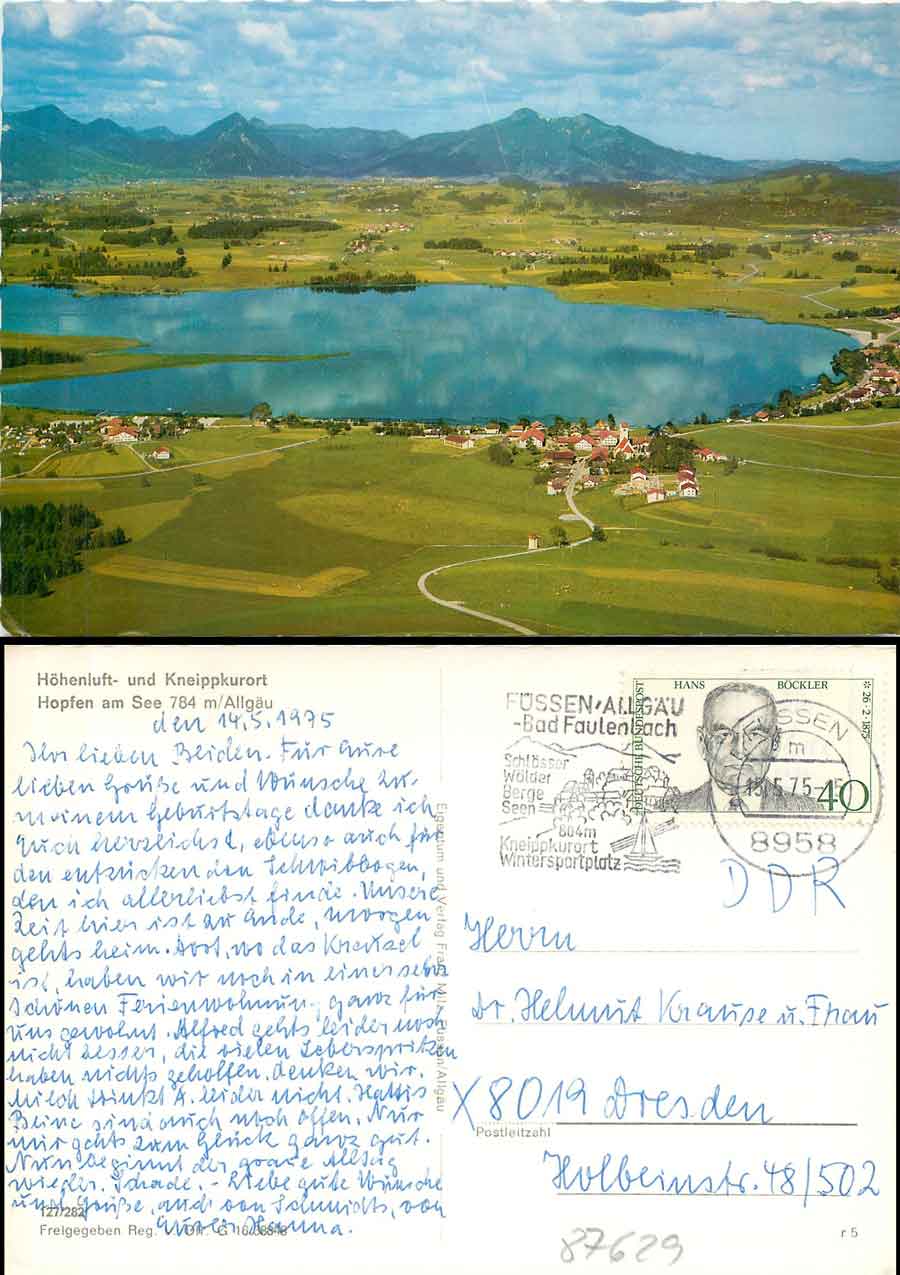 Höhenluft- und Kneippkurort
Hopfen am See 784 m/Allgäu
den 14.5.1975
Ihr lieben Beiden. Für Eure
lieben Grüße und Wünsche zu
meinem Geburtstage danke ich
Euch herzlichst, ebenso auch für
den entzückenden Schwibbogen,
den ich allerliebst finde. Unsere
Zeit hier ist zu Ende, morgen
gehts heim. Dort, wo das Kreuzel
ist, haben wir noch in einer sehr
schönen Ferienwohnung ganz für
uns gewohnt. Alfred gehts leider noch
nicht besser, die vielen Leberspritzen
haben nichts geholfen, denken wir.
Milch trinkt A. leider nicht. Hattis
Beine sind auch noch offen. Nur
mir gehts zum Glück ganz gut.
Nun beginnt der graue Alltag
wieder. Schade. - Liebe gute Wünsche
und Grüße, auch von Schmidts, von
Eurer Hanna.
127/282
Freigegeben Reg. G 16/
Eigentum und Verlag Füssen/Allgäu
FÜSSEN/ALLGÄU
-Bad Faulenbach
Schlösser
Wälder
Berge
Seen
804m
Kneippkurort
Wintersportplatz
HANS BÖCKLER
* 26·2·1875
DEUTSCHE BUNDESPOST
40
FÜSSEN
m
15.5.75-
8958
DDR
Herrn
Dr. Helmut Krause u. Frau
X 8019 Dresden
Postleitzahl
Holbeinstr. 48/502
87629
r 5